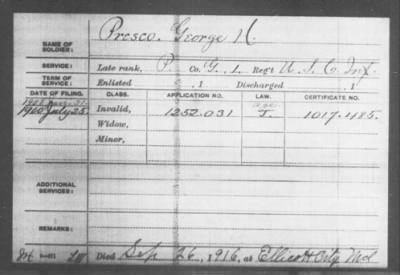 NAME OF SOLDIER: Presco, George H.
SERVICE: Late rank, P. Co. G, 1, Reg't U.S.C. Inf.
TERM OF SERVICE: Enlisted , 1 Discharged , 1
DATE OF FILING. CLASS. APPLICATION NO. LAW. CERTIFICATE NO.
age
1900 July 25. Invalid, 1252.031 1017.485.
Widow,
Minor,
ADDITIONAL SERVICES:
REMARKS:
Died Sep 26, 1916, at Ellicott City Md